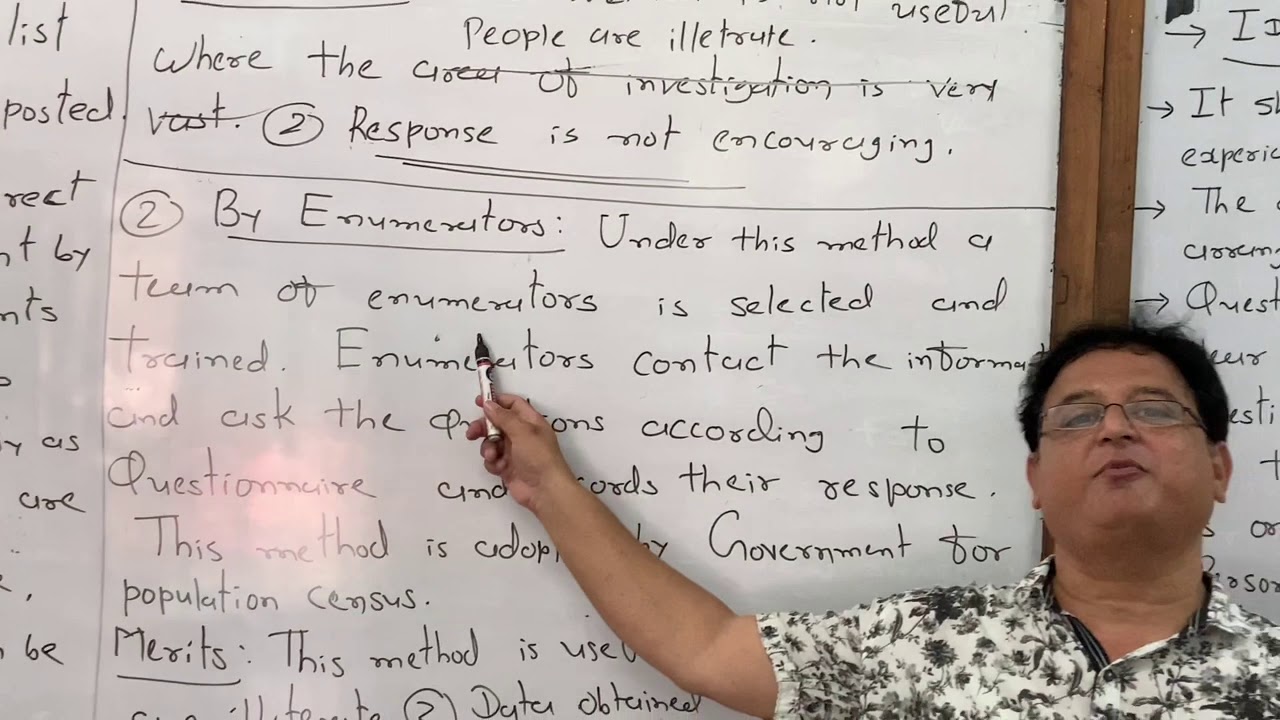 list
posted.
rect
nt by
nts
y as
are
be
useful
People are illetrute.
Where the area of investigation is very
vast. ② Response is not encouraging.
② By Enumerators: Under this method a
team of enumerators is selected and
trained. Enumerators contact the informa
and ask the according to
Questionnaire and cords their response.
This method is adop by Government for
population census.
Merits: This method is use
② Data obtained
→ It s
experi
→ The
arrang
→ Quest